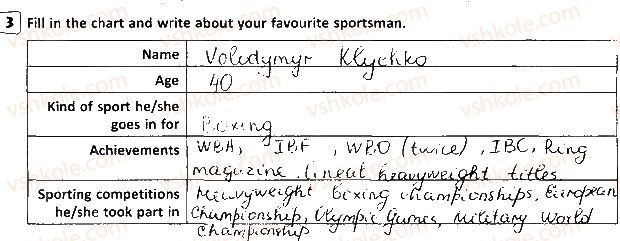 3 Fill in the chart and write about your favourite sportsman.
Name Volodymyr Klychko
Age 40
Kind of sport he/she
goes in for Boxing
Achievements WBA, IBF, WBO (twice), IBC, Ring
magazine. lineal heavyweight titles.
Sporting competitions Heavyweight boxing championships, European
he/she took part in Championship, Olympic Games, Military World
Championship